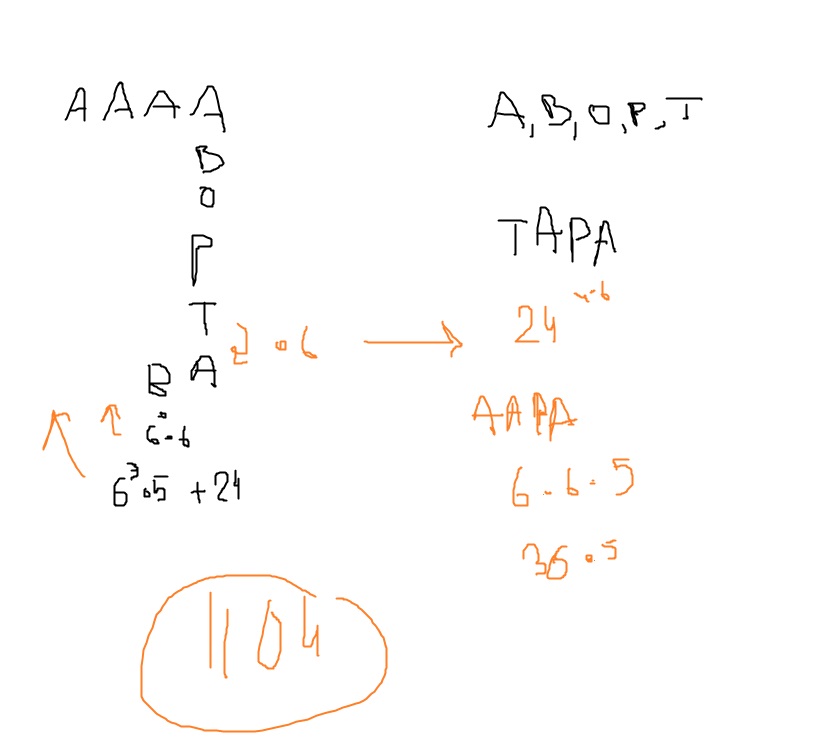 AAAA
B
O
P
T
BA
2 · 6
6 · 6
6³ · 5 + 24
1104
A, B, O, P, T
TAPA
24
4 · 6
AAPA
6 · 6 · 5
36 · 5